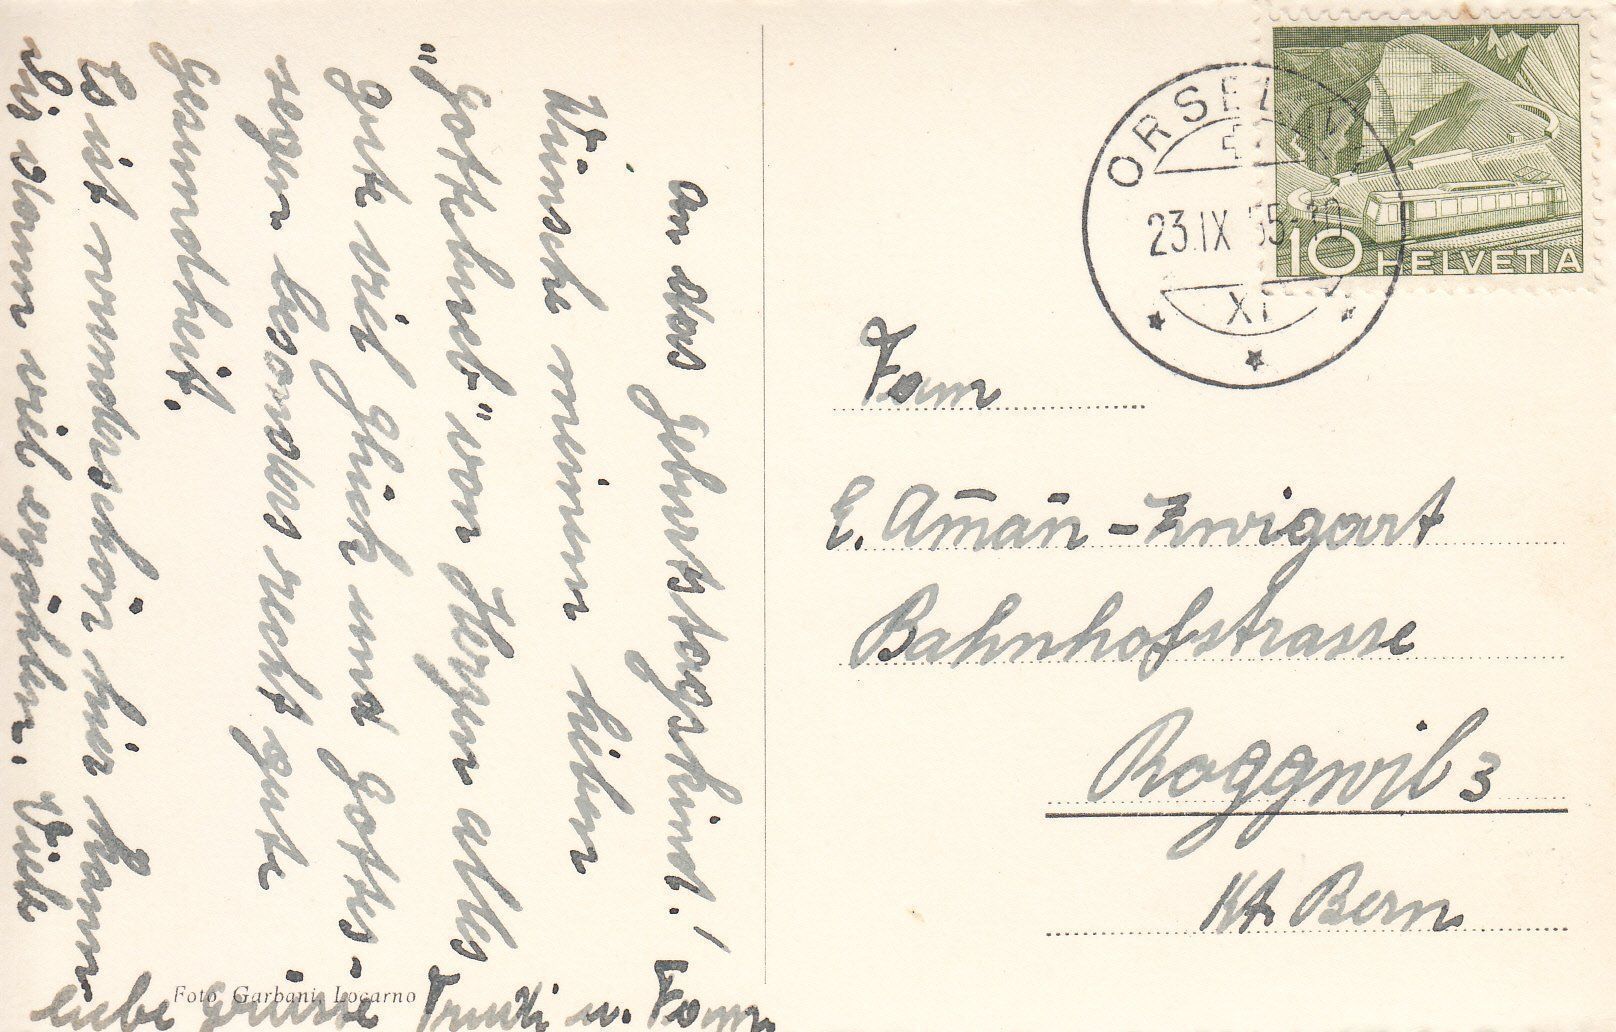 An das Geburtstagskind!
Wünsche meinem lieben
"Gottebueb" von Herzen alles
gute viel Glück und Gottes-
segen besonders recht gute
Gesundheit.
Es ist wunderschön hier kann
Dir dann viel erzählen. Viele
liebe Grüsse Trudi u. Fam.
Foto Garbani, Locarno
ORSELINA
23.IX 55-10
XI
10 HELVETIA
Fam
E. Aman̄-Zwigart
Bahnhofstrasse
Roggwil 3
Kt Bern